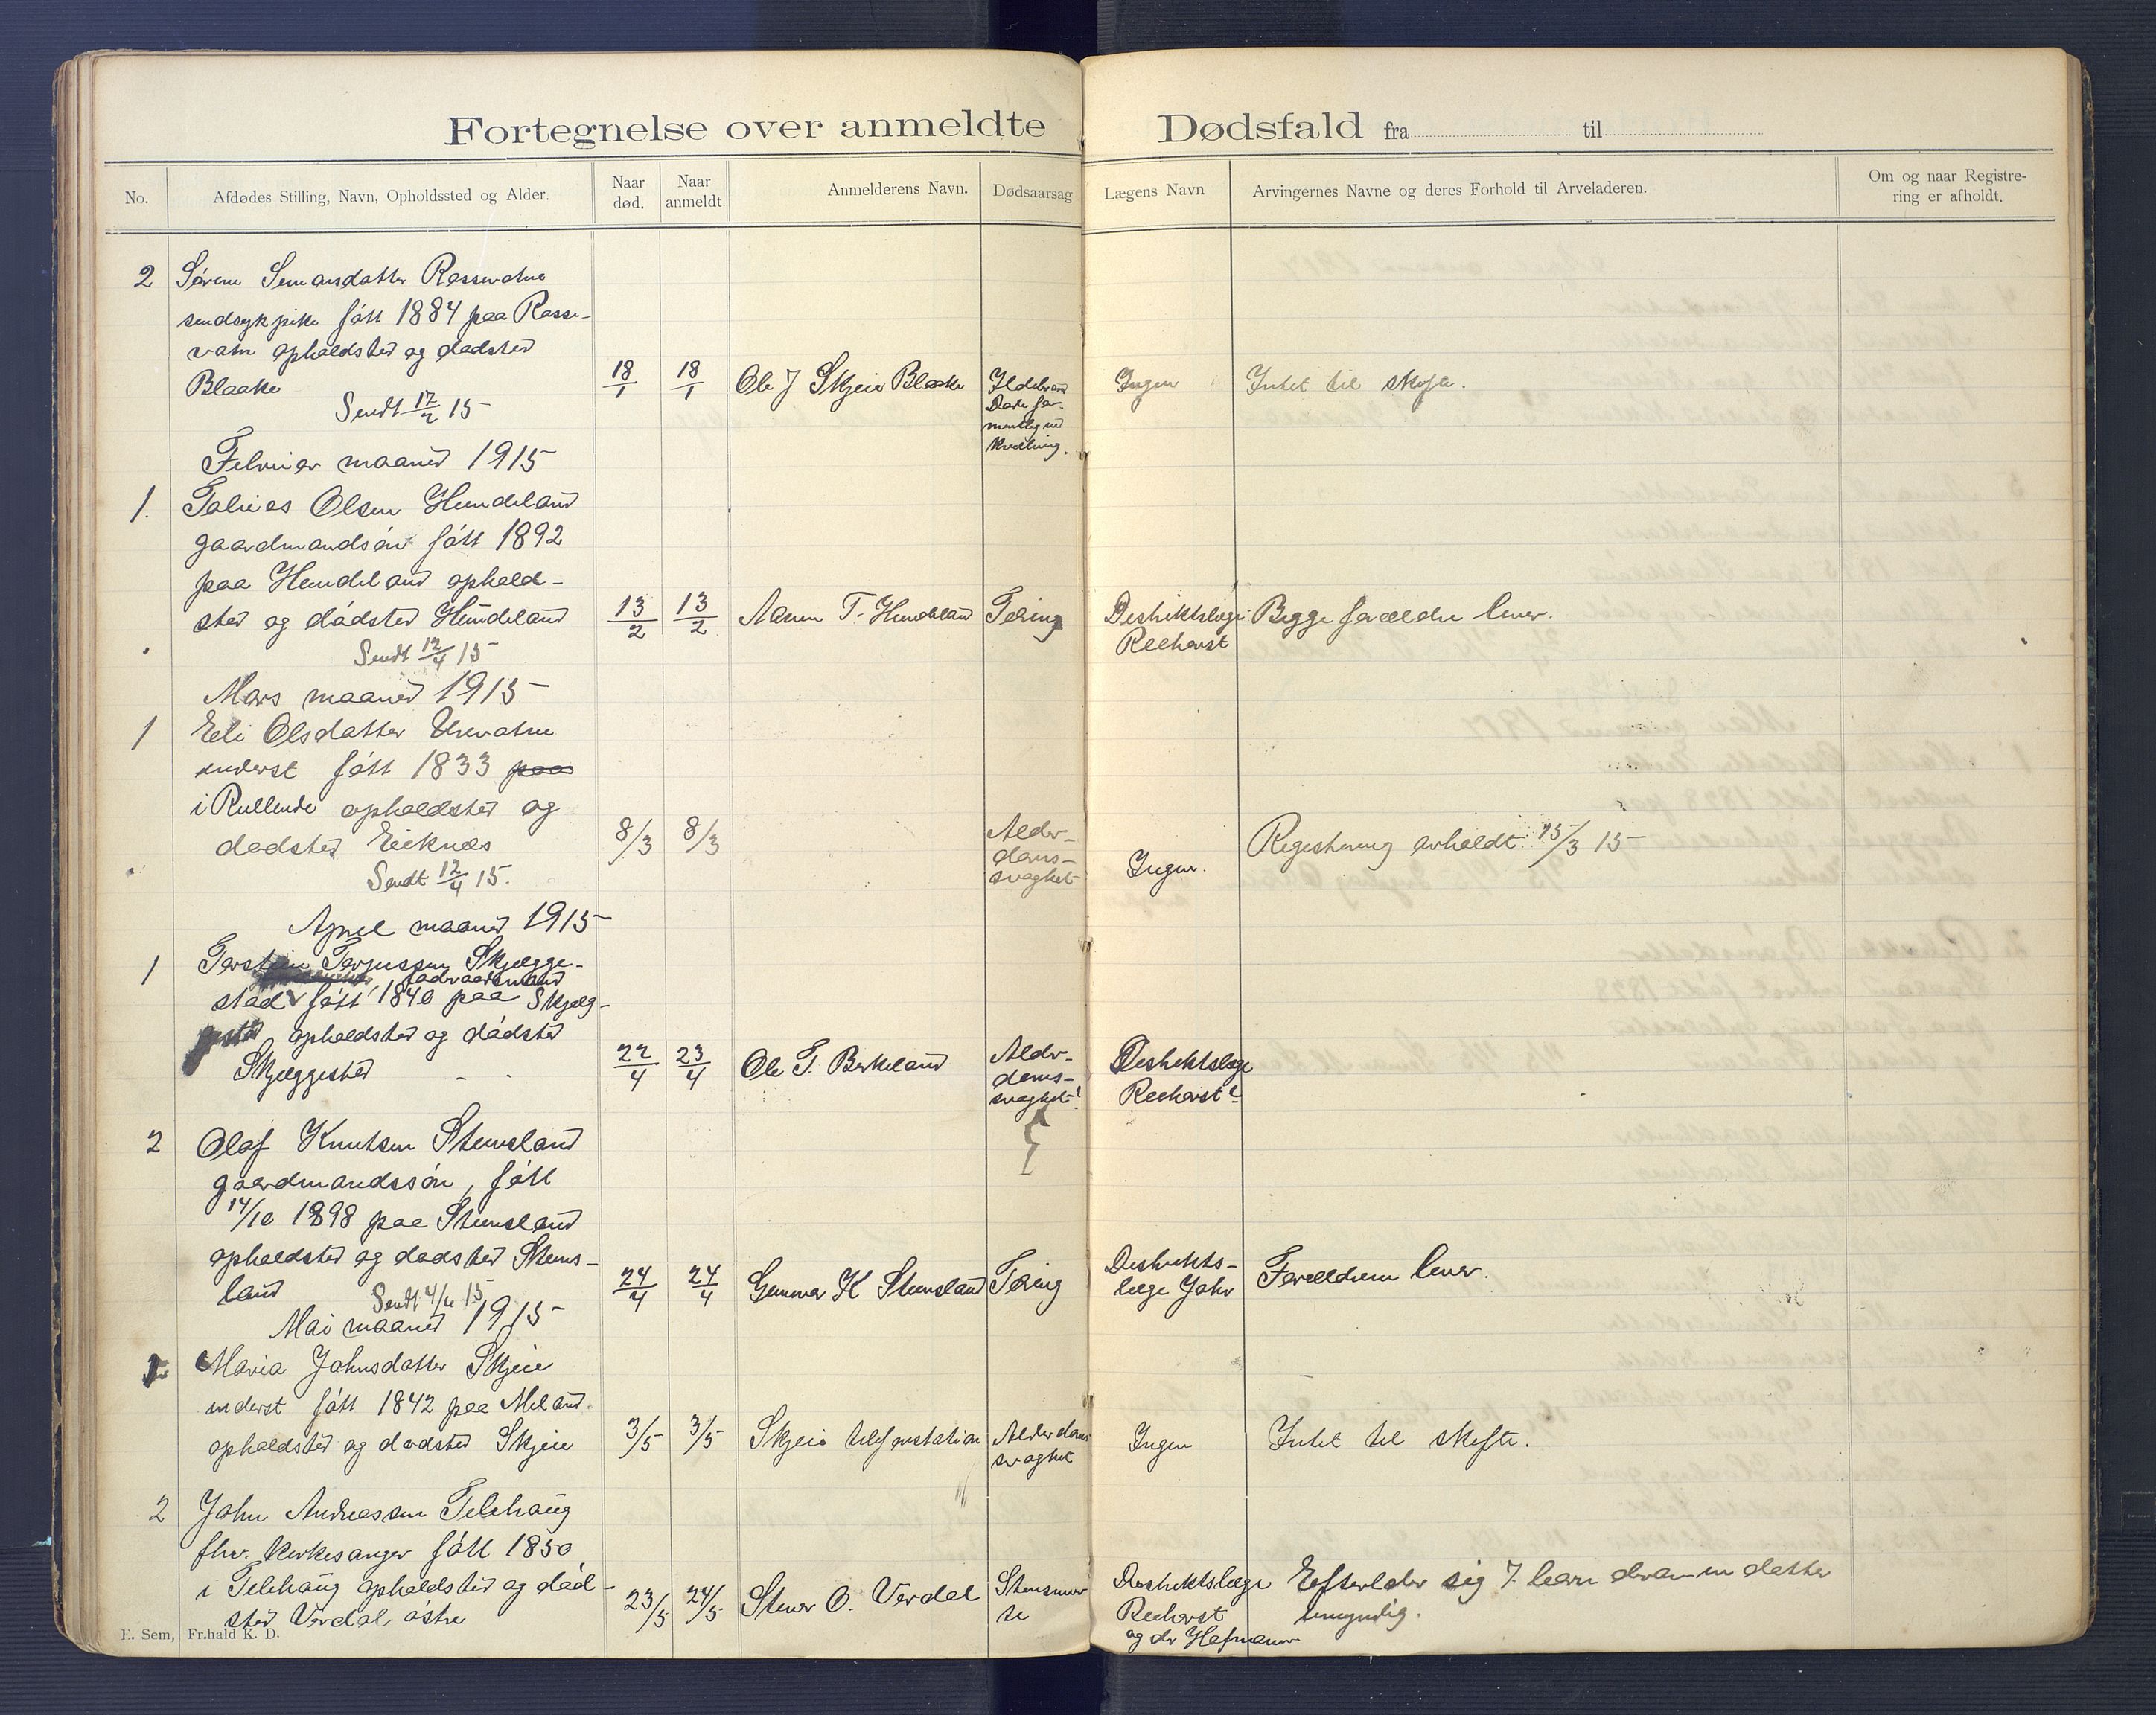 Fortegnelse over anmeldte Dødsfald fra til
No. Afdødes Stilling, Navn, Opholdssted og Alder. Naar død. Naar anmeldt. Anmelderens Navn. Dødsaarsag Lægens Navn Arvingernes Navne og deres Forhold til Arveladeren. Om og naar Registrering er afholdt.
2 Sørine Rossevatne
sindsyk pike født 1884 paa Rosse-
vatn opholdsted og dødsted
Blaake 18/1 18/1 Ole J Skjeie Blaake Ingen Intet til skifte.
Sendt 12/2 15
kvælning.
Februar maaned 1915
1. Tobias Olsen Hundeland
gaardmandsøn født 1892
paa Hundeland ophold-
sted og dødsted Hundeland 13/2 13/2 Aanen T. Hundeland Tæring Destriktslæge Begge forældre lever.
Reehorst
Sendt 12/4 15
Mars maaned 1915
1 Eli Olsdatter Urevatne
inderst født 1833 paa
i Rullende opholdsted og
dødsted Eieknes 8/3 8/3 Alder-
doms-
svaghet Ingen. Registrering avholdt 15/3 15
Sendt 12/4 15.
April maaned 1915
1 Torstein Terjussen Skjægge-
stad føderaadsmand født 1840 paa Skjæg-
gested opholdsted og dødsted
Skjæggested 22/4 23/4 Ole T. Birkeland Alder-
doms-
svaghet? Destriktslæge
Reehorst?
2 Olaf Knutsen Stensland
gaardmandssøn, født
14/10 1898 paa Stensland
opholdsted og dødsted Stens-
land 24/4 24/4 Gunnar K Stensland Tæring Destrikts-
læge Jahr Forældrene lever.
Sendt 4/6 15
Mai maaned 1915
1 Maria Johnsdatter Skjeie
inderst født 1842 paa Meland.
opholdsted og dødsted Skjeie 3/5 3/5 Skjeie telefonstation Alderdoms
svaghet Ingen Intet til skifte.
2 John Andreassen Telehaug
fhv. kirkesanger født 1850
i Telehaug opholdsted og død-
sted Verdal østre 23/5 24/5 Stener O. Verdal Destriktslæge
Reehorst
og dr Hofmann Efterlader sig 7 barn derav en datter
umyndig.
E. Sem, Fr.hald K. D.